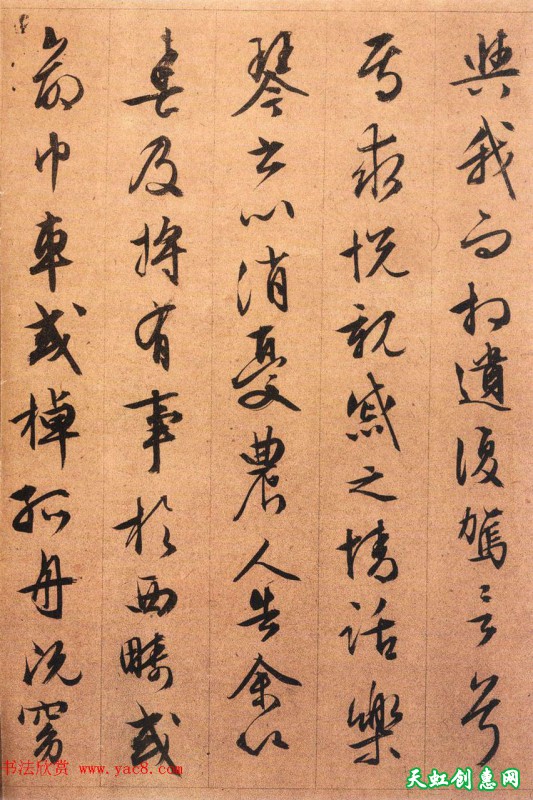 與我而相遺復駕言兮
焉求悦親戚之情話樂
琴書以消憂農人告余以
春及将有事於西疇或
命巾車或棹孤舟既窈
书法欣赏 www.yac8.com
天虹创意网